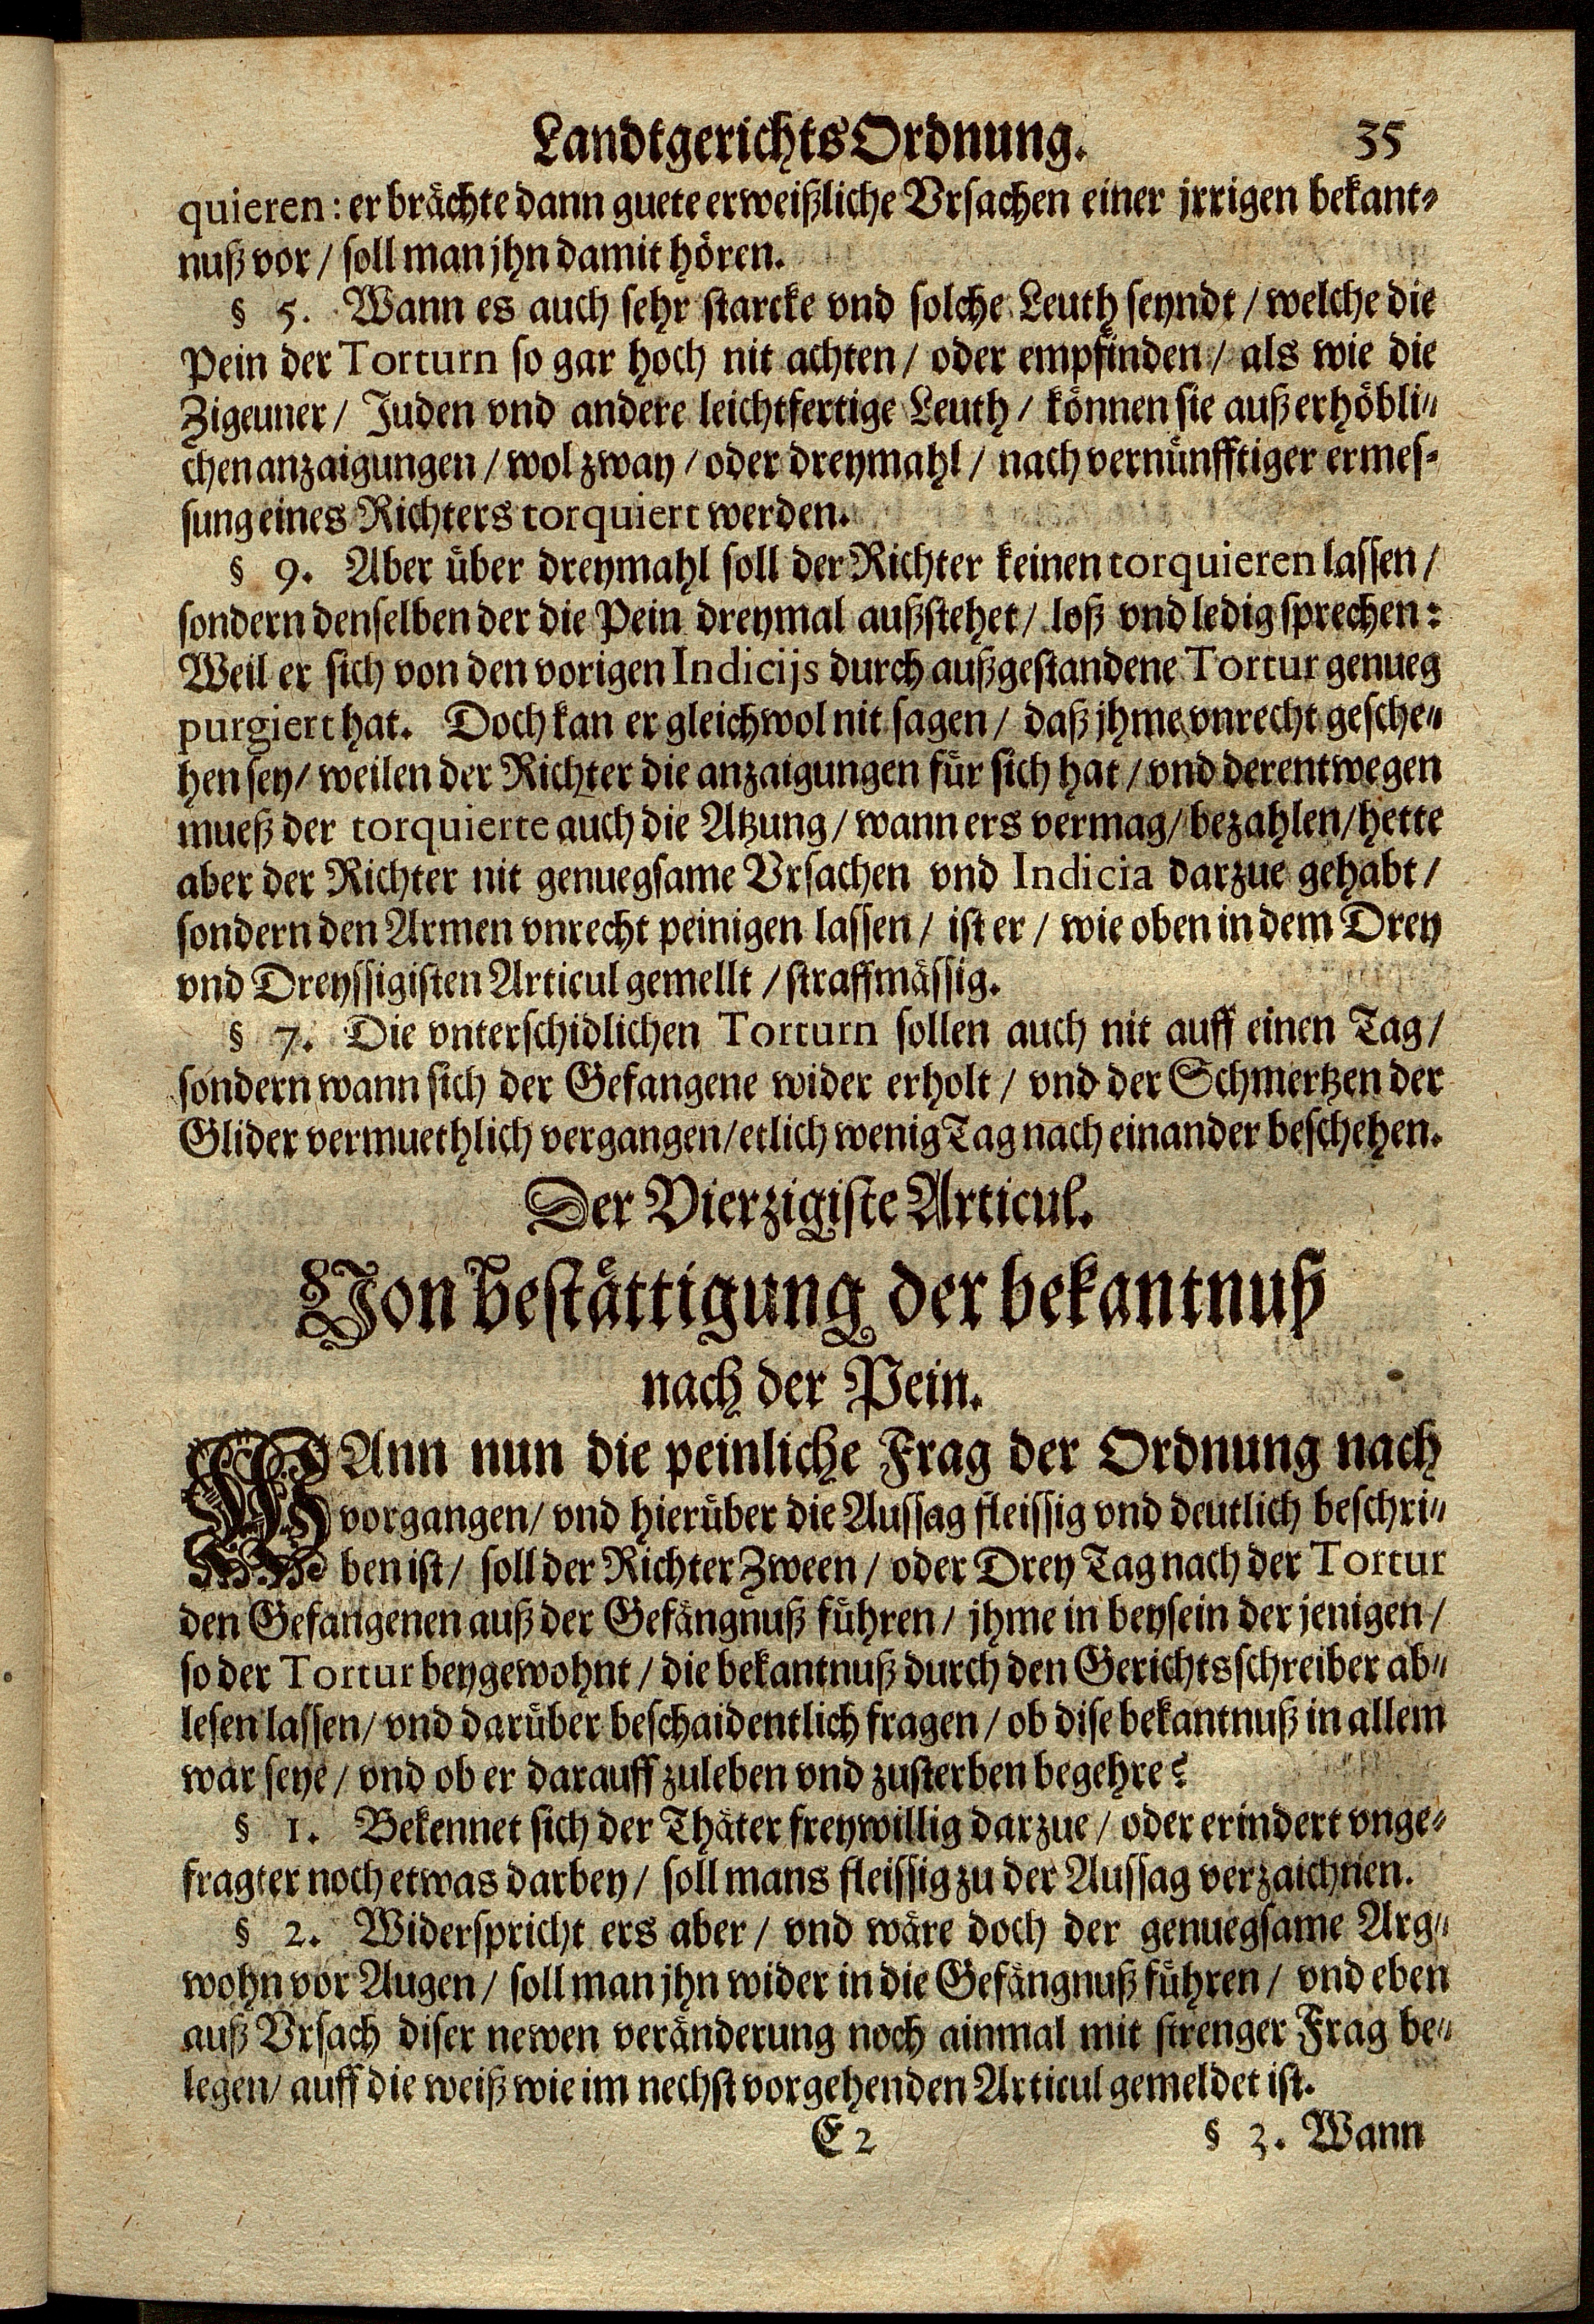 LandtgerichtsOrdnung. 35
quieren: er brächte dann guete erweißliche Vrsachen einer jrrigen bekant-
nuß vor / soll man jhn damit hören.
§ 5. Wann es auch sehr starcke vnd solche Leuth seyndt / welche die
Pein der Torturn so gar hoch nit achten / oder empfinden / als wie die
Zigeuner / Juden vnd andere leichtfertige Leuth / können sie auß erhöbli-
chen anzaigungen / wol zway / oder dreymahl / nach vernünfftiger ermes-
sung eines Richters torquiert werden.
§ 9. Aber über dreymahl soll der Richter keinen torquieren lassen /
sondern denselben der die Pein dreymal außstehet / loß vnd ledig sprechen:
Weil er sich von den vorigen Indicijs durch außgestandene Tortur genueg
purgiert hat. Doch kan er gleichwol nit sagen / daß jhme vnrecht gesche-
hen sey / weilen der Richter die anzaigungen für sich hat / vnd derentwegen
mueß der torquierte auch die Atzung / wann ers vermag / bezahlen / hette
aber der Richter nit genuegsame Vrsachen vnd Indicia darzue gehabt /
sondern den Armen vnrecht peinigen lassen / ist er / wie oben in dem Drey
vnd Dreyssigisten Articul gemellt / straffmässig.
§ 7. Die vnterschidlichen Torturn sollen auch nit auff einen Tag /
sondern wann sich der Gefangene wider erholt / vnd der Schmertzen der
Glider vermuethlich vergangen / etlich wenig Tag nach einander beschehen.
Der Vierzigiste Articul.
Von bestättigung der bekantnuß
nach der Pein.
WAnn nun die peinliche Frag der Ordnung nach
vorgangen / vnd hierüber die Aussag fleissig vnd deutlich beschri-
ben ist / soll der Richter Zween / oder Drey Tag nach der Tortur
den Gefangenen auß der Gefängnuß führen / jhme in beysein der jenigen /
so der Tortur beygewohnt / die bekantnuß durch den Gerichtsschreiber ab-
lesen lassen / vnd darüber beschaidentlich fragen / ob dise bekantnuß in allem
war seye / vnd ob er darauff zuleben vnd zusterben begehre?
§ 1. Bekennet sich der Thäter freywillig darzue / oder erindert vnge-
fragter noch etwas darbey / soll mans fleissig zu der Aussag verzaichnen.
§ 2. Widerspricht ers aber / vnd wäre doch der genuegsame Arg-
wohn vor Augen / soll man jhn wider in die Gefängnuß führen / vnd eben
auß Vrsach diser newen veränderung noch ainmal mit strenger Frag be-
legen / auff die weiß wie im nechst vorgehenden Articul gemeldet ist.
E 2 § 3. Wann